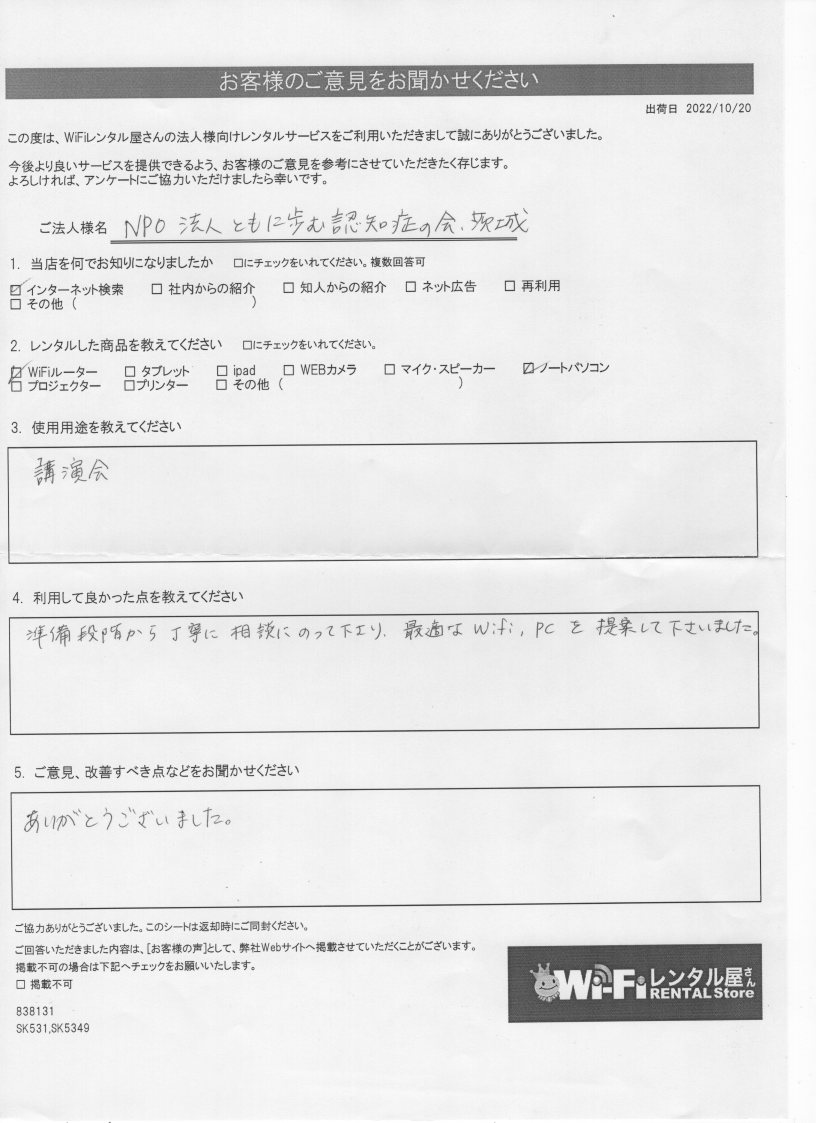 お客様のご意見をお聞かせください
出荷日 2022/10/20
この度は、WiFiレンタル屋さんの法人様向けレンタルサービスをご利用いただきまして誠にありがとうございました。
今後より良いサービスを提供できるよう、お客様のご意見を参考にさせていただきたく存じます。
よろしければ、アンケートにご協力いただけましたら幸いです。
ご法人様名 NPO 法人ともに歩む認知症の会、茨城
1. 当店を何でお知りになりましたか □にチェックをいれてください。複数回答可
☑ インターネット検索 □ 社内からの紹介 □ 知人からの紹介 □ ネット広告 □ 再利用
□ その他 ( )
2. レンタルした商品を教えてください □にチェックをいれてください。
☑ WiFiルーター □ タブレット □ ipad □ WEBカメラ □ マイク・スピーカー ☑ ノートパソコン
□ プロジェクター □プリンター □ その他 ( )
3. 使用用途を教えてください
講演会
4. 利用して良かった点を教えてください
準備段階から丁寧に相談にのって下さり、最適なWifi, PCを提案して下さいました。
5. ご意見、改善すべき点などをお聞かせください
ありがとうございました。
ご協力ありがとうございました。このシートは返却時にご同封ください。
ご回答いただきました内容は、[お客様の声]として、弊社Webサイトへ掲載させていただくことがございます。
掲載不可の場合は下記へチェックをお願いいたします。
□ 掲載不可
838131
SK531,SK5349
Wi-Fiレンタル屋さん
RENTAL Store